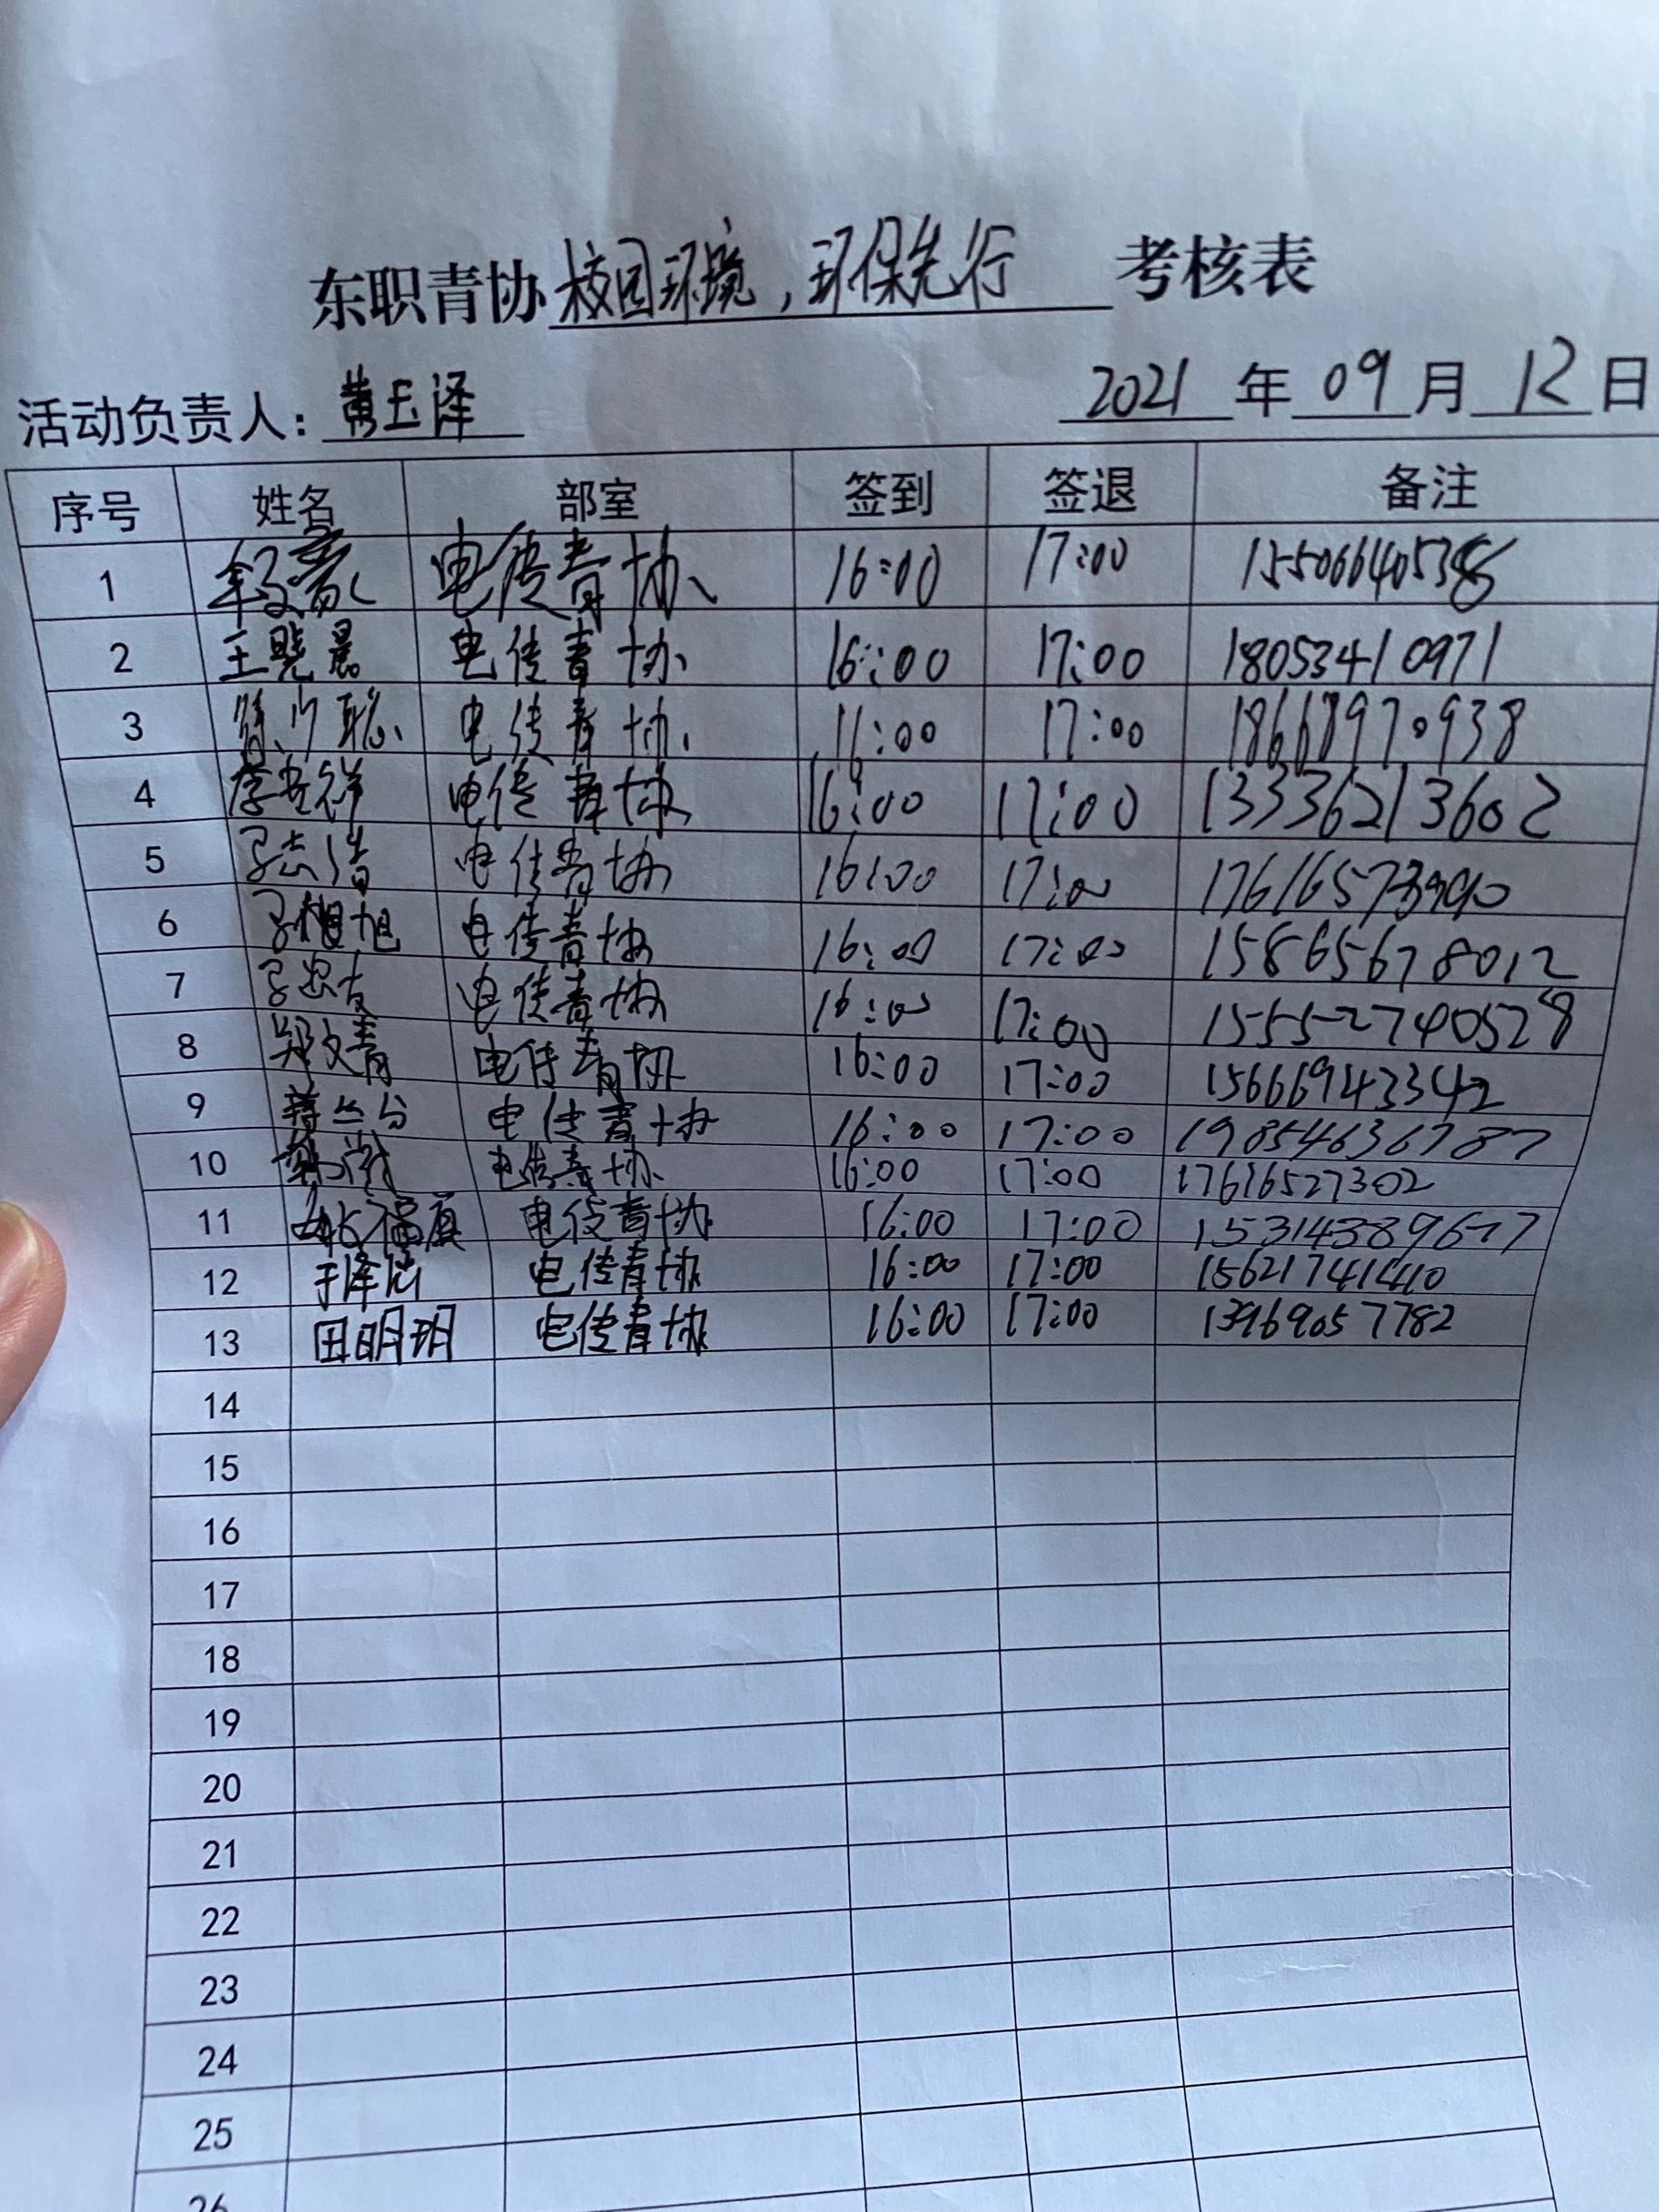 东职青协校园环境，环保先行 考核表
活动负责人：黄玉泽 2021年09月12日
序号 姓名 部室 签到 签退 备注
1 电传青协 16:00 17:00
2 王晓晨 电传青协 16:00 17:00 18053410971
3 电传青协 17:00 18661970938
4 李安祥 电传青协 16:00 17:00 13336213602
5 电传青协 16:00 17:00
6 电传青协 16:00 17:00 15865678012
7 电传青协 16:00 17:00 15552740528
8 郑文青 电传青协 16:00 17:00 15666943342
9 电传青协 16:00 17:00 19854636787
10 电传青协 16:00 17:00 17616527302
11 电传青协 16:00 17:00 15314389677
12 电传青协 16:00 17:00 15621741440
13 田明玥 电传青协 16:00 17:00 13969057782
14
15
16
17
18
19
20
21
22
23
24
25
26